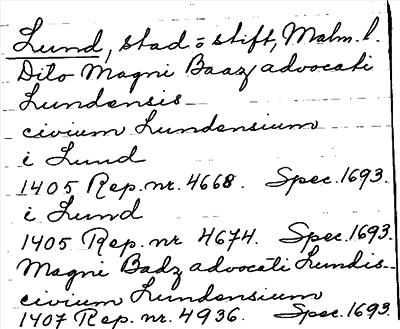 Lund, stad o stift, Malm. l.
Dito Magni Baaz advocati
Lundensis
civium Lundensium
i Lund
1405 Rep. nr. 4668. Spec. 1693.
i Lund
1405 Rep. nr 4674. Spec. 1693.
Magni Badz advocati Lundis
civium Lundensium
1407 Rep. nr. 4936. Spec. 1693.